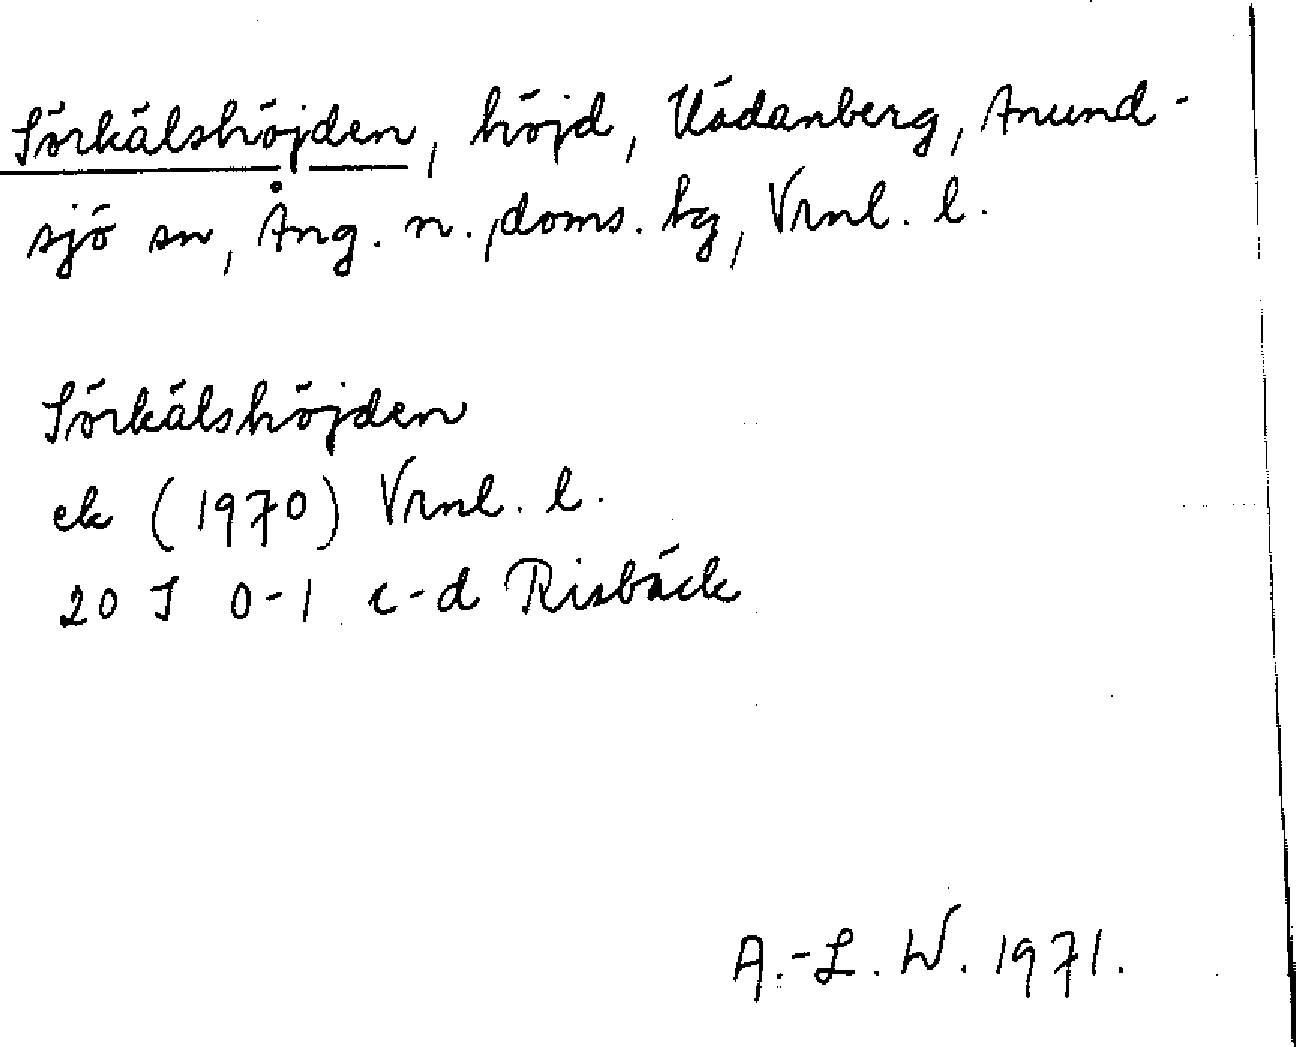 Sörkälshöjden, höjd, Uddanberg, Anund-
sjö sn, Ång. n., doms. hg, Vrnl. l.
Sörkälshöjden
ek (1970) Vrnl. l.
20 I 0-1 c-d Risbäck
A.-L. W. 1971.